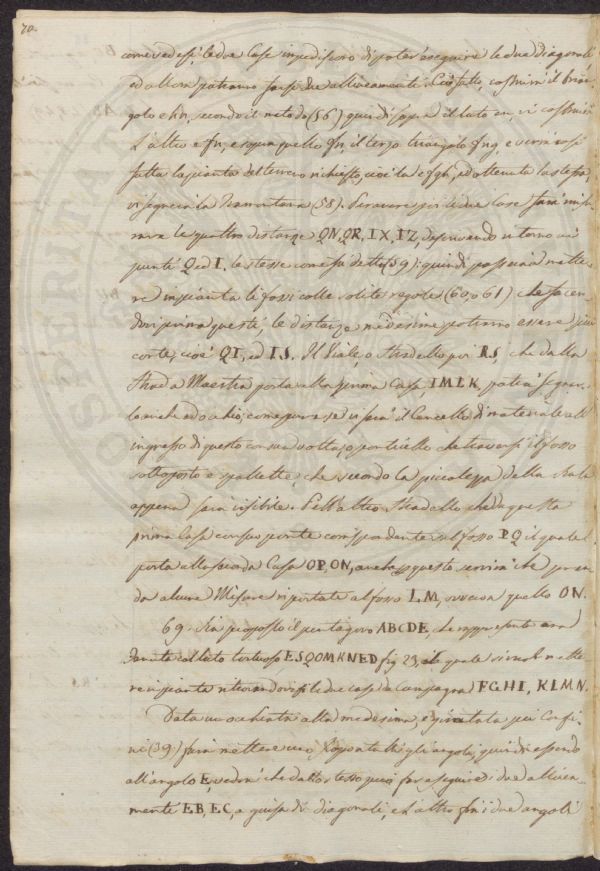 70.
come vedesi, le due Case impediscono di poter eseguire le due diagonali,
ed allora potranno farsi due allineamenti. Ciò fatto, costruirà il trian-
golo ehn, secondo il metodo (56) quindi sopra il lato en, vi costruirà
l'altro efn, e sopra quello fn, il terzo triangolo fng, e verrà così
fatta la pianta del terreno richiesto, cioè la efgh, ed ottenuta la stessa
vi segnerà la Tramontana (58). Per avere poi le due Case farà misu-
rare le quattro distanze QN, QR, IX, IZ, descrivendo intorno ai
punti Q ed I, le stesse come fu detto (59): quindi passerà a mette-
re in pianta li fossi colle solite regole (60, 61) che facen-
dosi prima questi, le distanze medesime potranno essere più
corte, cioè QI, ed IS. Il Viale, o stradello poi RS, che dalla
Strada Maestra porta alla prima Casa IMLK, potrà segnar-
lo anche ad occhio, come pure se vi sarà il Cancello di materiale all'
ingresso di questo con sua volta, o ponticello che traversi il fosso
sottoposto e spallette, che secondo la picolezza della scala
appena sarà visibile. Dell'altro stradello che da questa
prima Casa con suo ponte corrispondente sul fosso PQ il quale
porta alla seconda Casa OP, ON, anche questo servirà che pren-
da alcune Misure riportate al fosso LM, ovvero a quello ON.
69. Sia proposto il pentagono ABCDE, che rappresenta un
dante col lato tortuoso ESQOMKNED fig 23, il quale si vuol mette-
re in pianta ritrovandovisi le due case da Campagna FGHI, KLMN.
Data un'occhiata alla medesima, e girata pei Confi-
ni (39) farà mettere uno scopo a tutti gli angoli, quindi essendo
all'angolo E, vedrà che dallo stesso puosi far eseguire due allinea-
mente EB, EC, a guisa di diagonali, e l'altro fra i due angoli